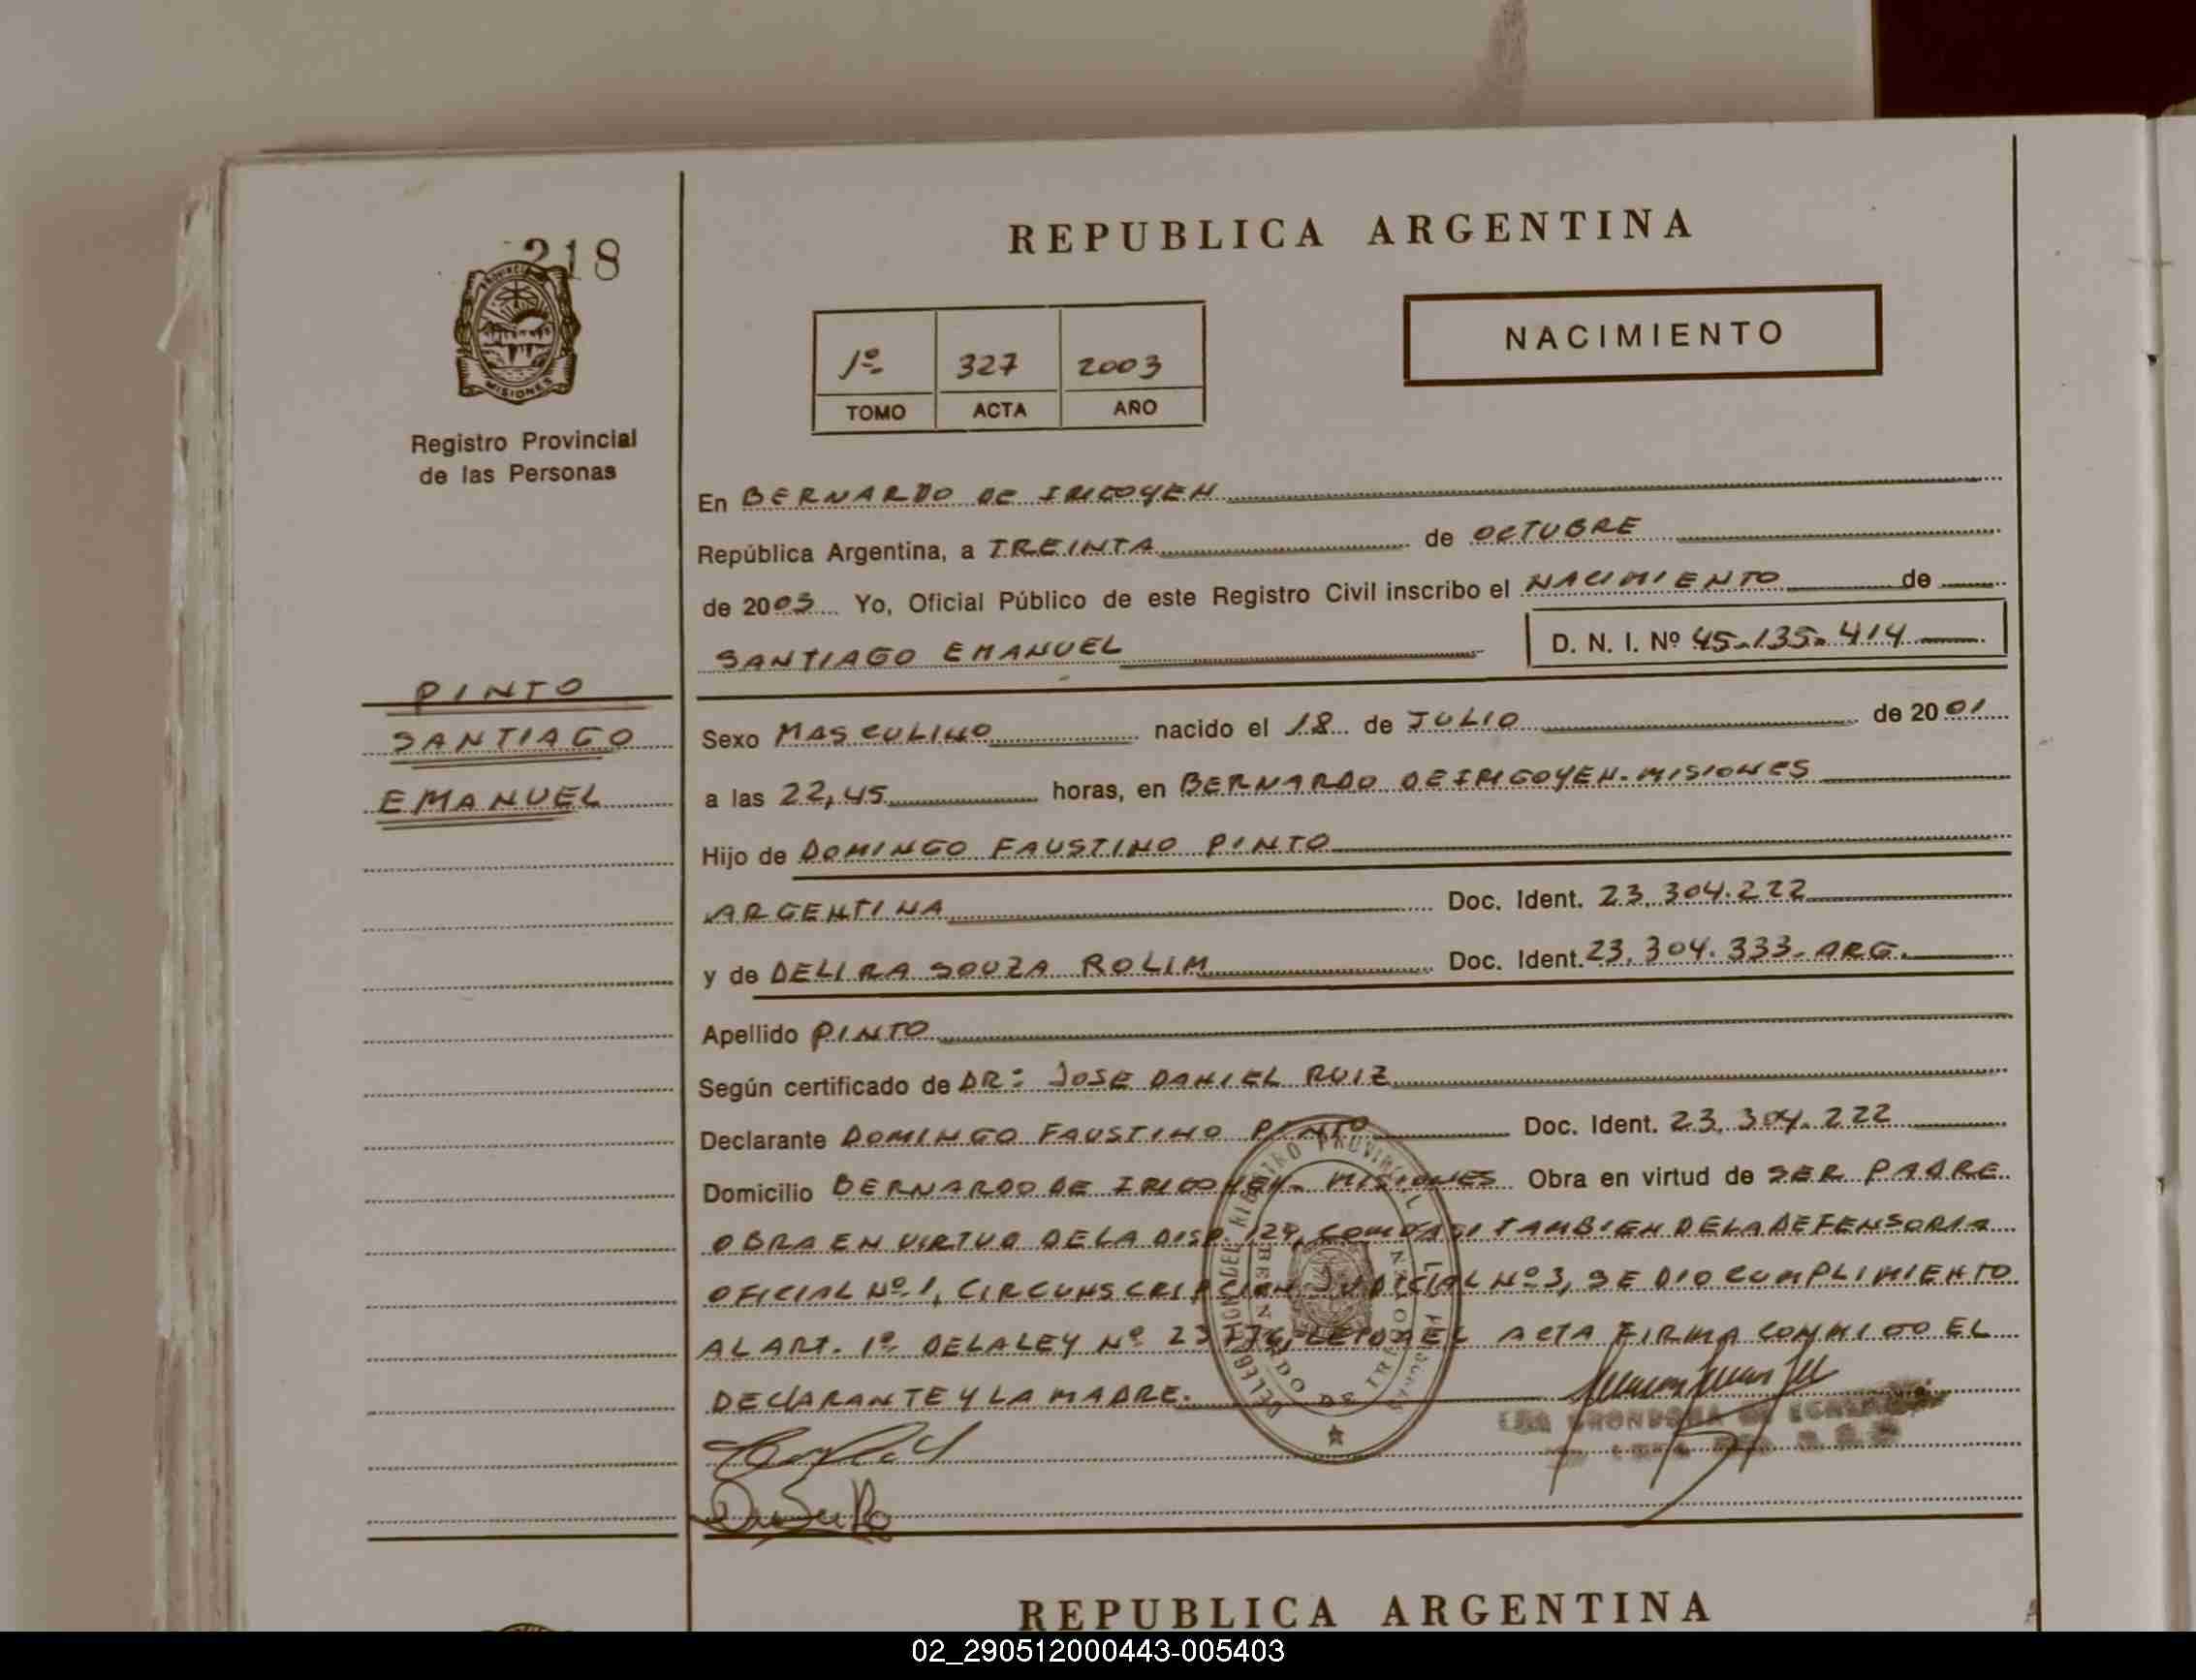 218
PROVINCIA
MISIONES
Registro Provincial
de las Personas
REPUBLICA ARGENTINA
NACIMIENTO
1º 327 2003
TOMO ACTA AÑO
En BERNARDO DE IRIGOYEN
República Argentina, a TREINTA de OCTUBRE
de 2003 Yo, Oficial Público de este Registro Civil inscribo el NACIMIENTO de
SANTIAGO EMANUEL D. N. I. Nº 45.135.414
PINTO
SANTIAGO
EMANUEL
Sexo MASCULINO nacido el 18 de JULIO de 2001
a las 22,45 horas, en BERNARDO DE IRIGOYEN-MISIONES
Hijo de DOMINGO FAUSTINO PINTO
ARGENTINA Doc. Ident. 23.304.222
y de DELIRA SOUZA ROLIM Doc. Ident. 23.304.333-ARG.
Apellido PINTO
Según certificado de DR: JOSE DANIEL RUIZ
Declarante DOMINGO FAUSTINO PINTO Doc. Ident. 23.304.222
Domicilio BERNARDO DE IRIGOYEN-MISIONES Obra en virtud de SER PADRE
OBRA EN VIRTUD DE LA DISP. 129, COMO ASI TAMBIEN DE LA DEFENSORIA
OFICIAL Nº 1, CIRCUNSCRIPCION JUDICIAL Nº 3, SE DIO CUMPLIMIENTO
AL ART. 1º DE LA LEY Nº ACTA FIRMA CONMIGO EL
DECLARANTE Y LA MADRE.
REPUBLICA ARGENTINA
02_290512000443-005403